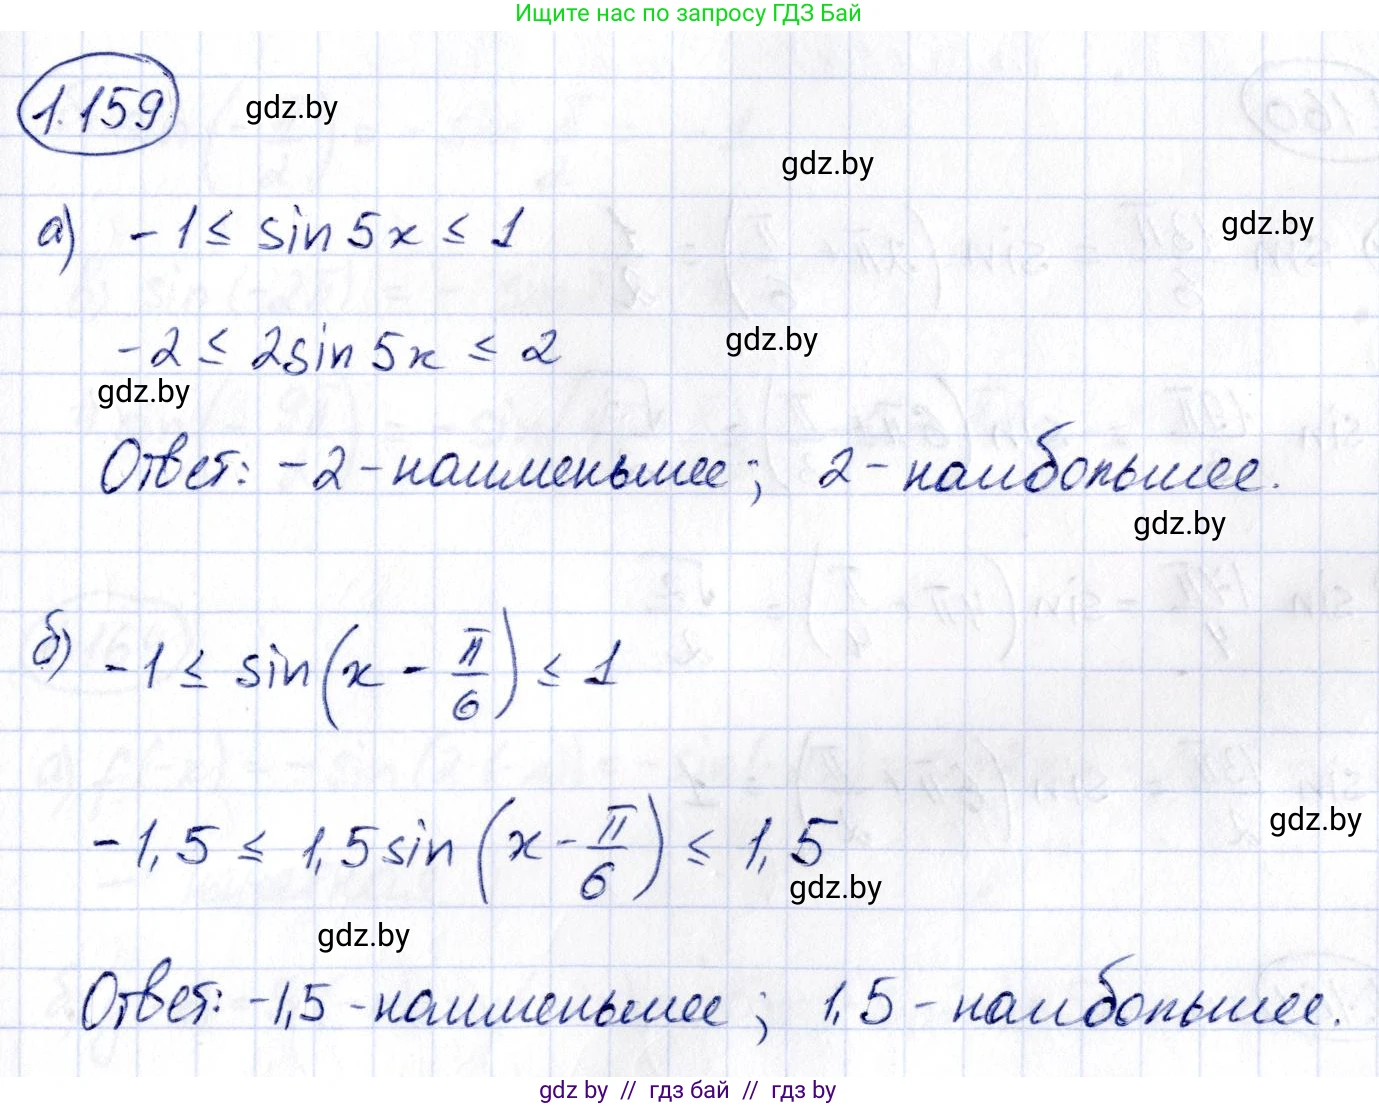 Ищите нас по запросу ГДЗ Бай
1.159
gdz.by
gdz.by
а) -1 ≤ sin 5x ≤ 1
gdz.by
-2 ≤ 2sin 5x ≤ 2
gdz.by
gdz.by
Ответ: -2 - наименьшее; 2 - наибольшее.
gdz.by
б) -1 ≤ sin(x - π/6) ≤ 1
gdz.by
-1,5 ≤ 1,5 sin(x - π/6) ≤ 1,5
gdz.by
gdz.by
Ответ: -1,5 - наименьшее; 1,5 - наибольшее.
gdz by // гдз бай // гдз by